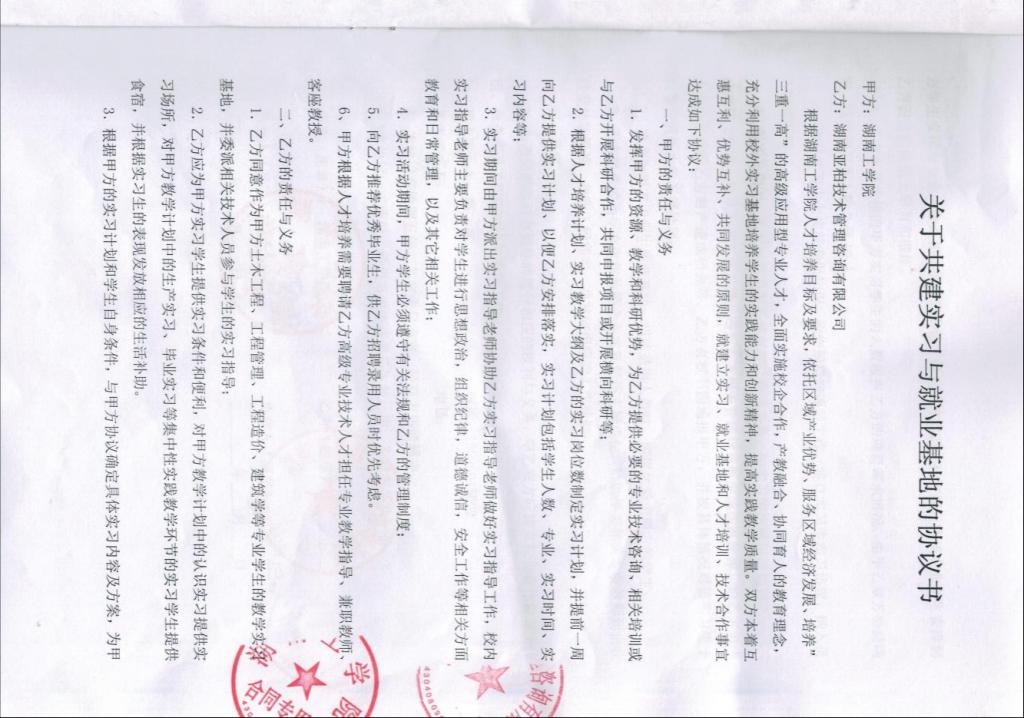 关于共建实习与就业基地的协议书
甲方：湖南工学院
乙方：湖南亚柏技术管理咨询有限公司
根据湖南工学院人才培养目标及要求，依托区域产业优势、服务区域经济发展，培养“
三重一高”的高级应用型专业人才，全面实施校企合作，产教融合、协同育人的教育理念，
充分利用校外实习基地培养学生的实践能力和创新精神，提高实践教学质量。双方本着互
惠互利、优势互补、共同发展的原则，就建立实习、就业基地和人才培训、技术合作事宜
达成如下协议：
一、甲方的责任与义务
1. 发挥甲方的资源、教学和科研优势，为乙方提供必要的专业技术咨询、相关培训或
与乙方开展科研合作，共同申报项目或开展横向科研等；
2. 根据人才培养计划、实习教学大纲及乙方的实习岗位数制定实习计划，并提前一周
向乙方提供实习计划，以便乙方安排落实，实习计划包括学生人数、专业、实习时间、实
习内容等；
3. 实习期间由甲方派出实习指导老师协助乙方实习指导老师做好实习指导工作，校内
实习指导老师主要负责对学生进行思想政治，组织纪律，道德诚信，安全工作等相关方面
教育和日常管理，以及其它相关工作；
4. 实习活动期间，甲方学生必须遵守有关法规和乙方的管理制度；
5. 向乙方推荐优秀毕业生，供乙方招聘录用人员时优先考虑。
6. 甲方根据人才培养需要聘请乙方高级专业技术人才担任专业教学指导、兼职教师、
客座教授。
二、乙方的责任与义务
1. 乙方同意作为甲方土木工程、工程管理、工程造价、建筑学等专业学生的教学实习
基地，并委派相关技术人员参与学生的实习指导；
2. 乙方应为甲方实习学生提供实习条件和便利，对甲方教学计划中的认识实习提供实
习场所，对甲方教学计划中的生产实习、毕业实习等集中性实践教学环节的实习学生提供
食宿，并根据实习生的表现发放相应的生活补助。
3. 根据甲方的实习计划和学生自身条件，与甲方协议确定具体实习内容及方案，为甲
学院
合同专用
咨询有